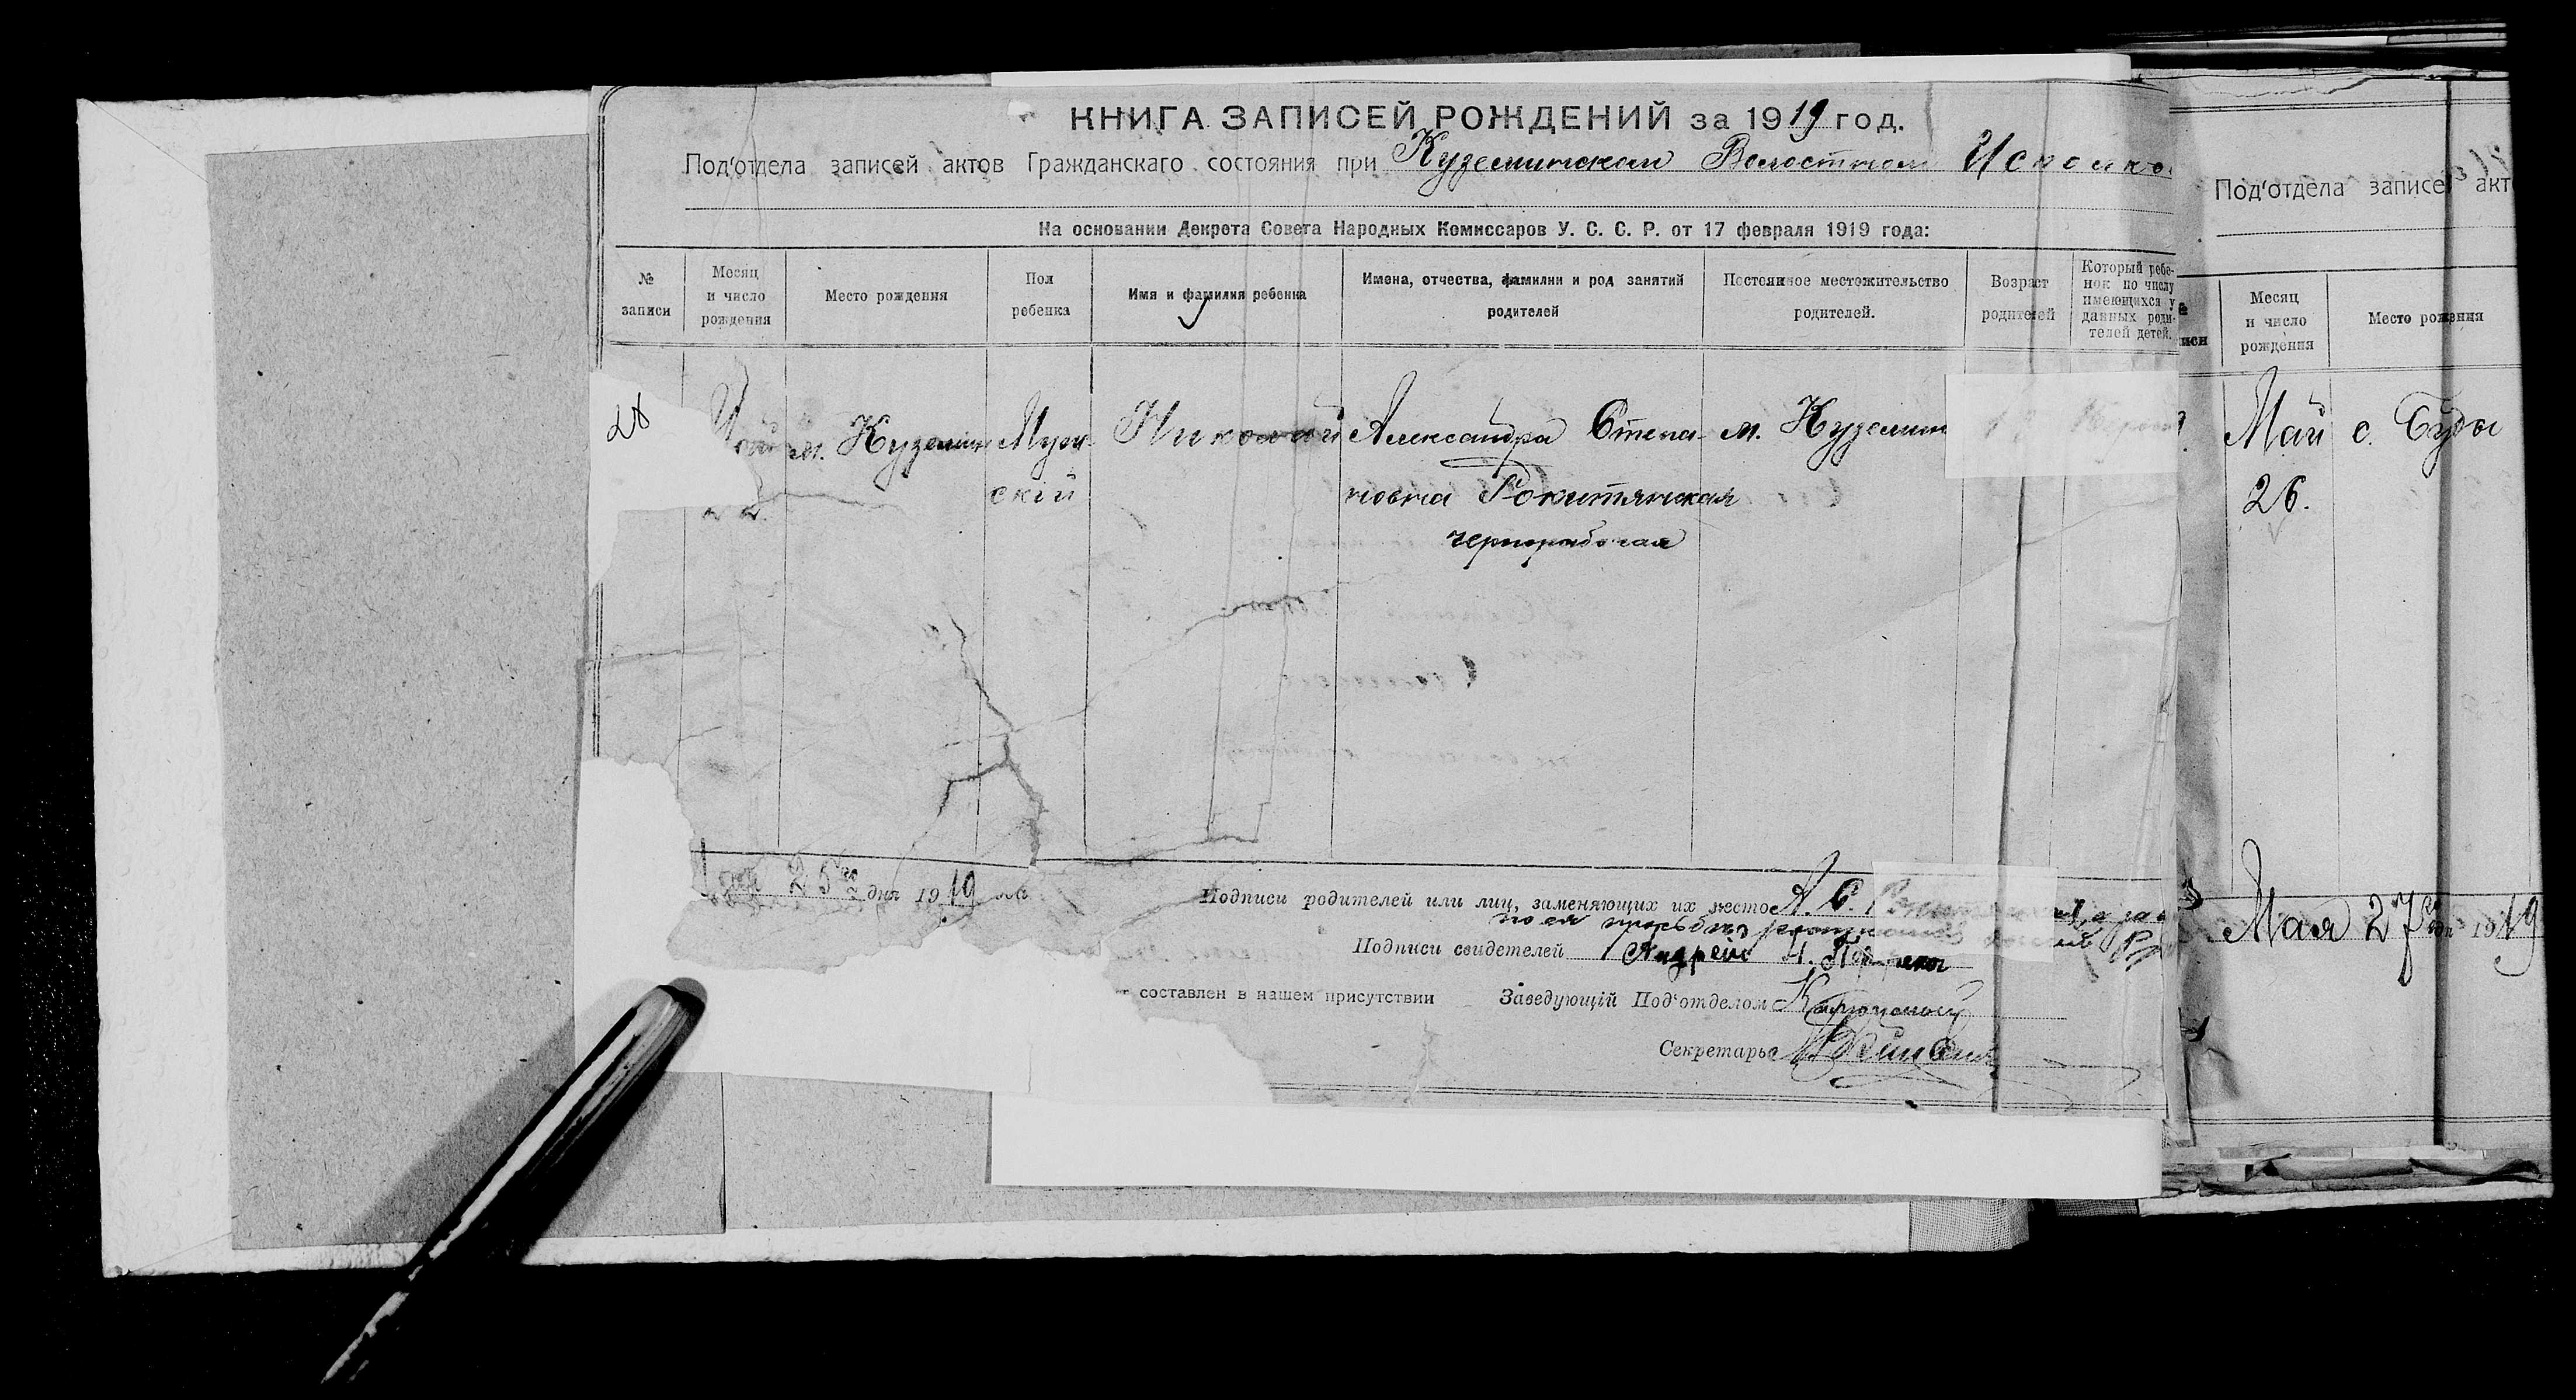 КНИГА ЗАПИСЕЙ РОЖДЕНИЙ за 1919 год.
Под'отдела записей актов Гражданскаго состояния при Куземинском Волостном Исполко
На основании Декрета Совета Народных Комиссаров У. С. С. Р. от 17 февраля 1919 года:
№ записи
Месяц и число рождения
Место рождения
Пол ребенка
Имя и фамилия ребенка
Имена, отчества, фамилии и род занятий родителей
Постоянное местожительство родителей.
Возраст родителей
Который ребенок по числу имеющихся у данных родителей детей.
м. Куземин Муж- Николай Александра Степа- м. Куземин
ский новна Рокитянская
чернорабочая
25 дня 1919
Подписи родителей или лиц, заменяющих их место А. С.
по ея просьбе
Подписи свидетелей 1 Андрей Н.
составлен в нашем присутствии Заведующій Под'отделом
Секретарь
Под'отдела записе акт
Месяц и число рождения
Место рождения
Май с. Буды
26.
Мая 27 дня 1919